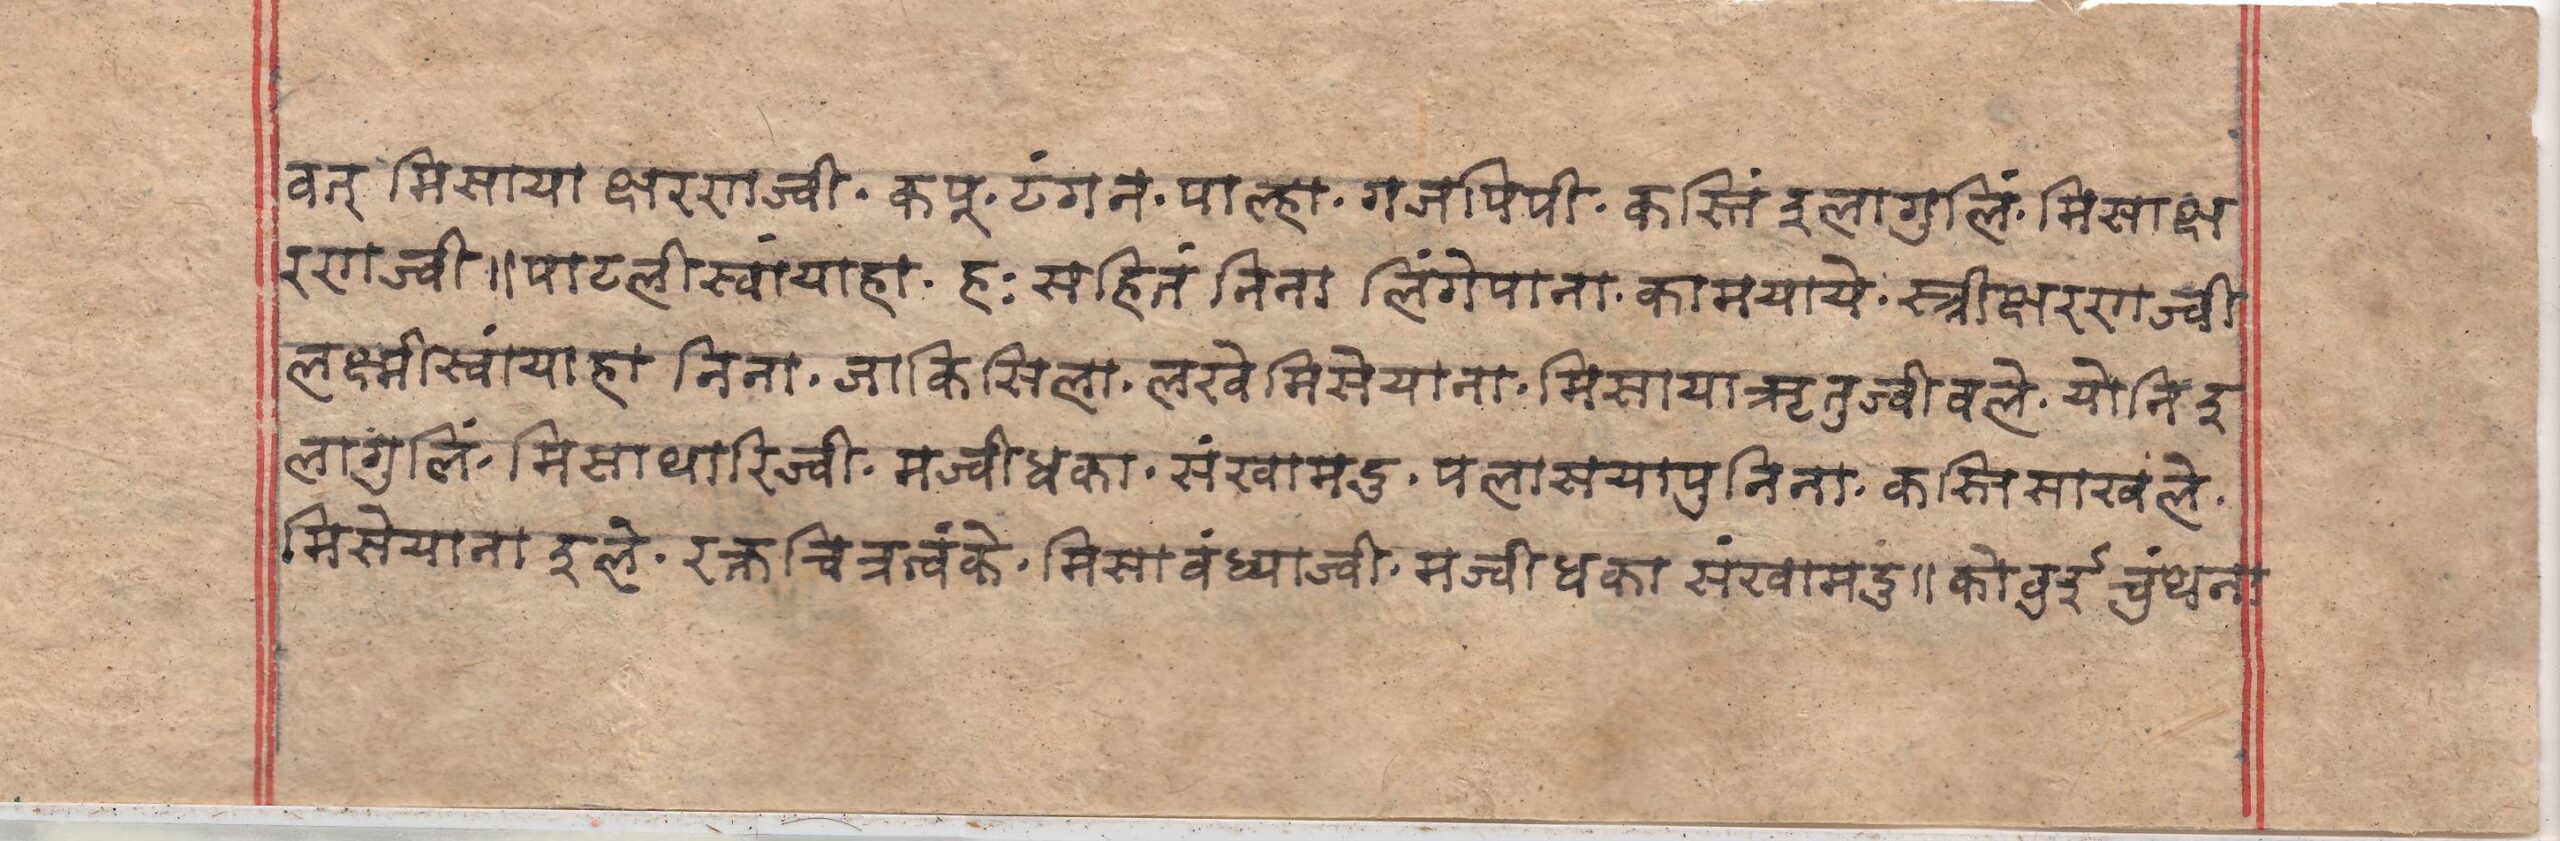 वन् मिसाया क्षरराज्वी· कपू· टंगन· पाल्हा· गजपिपी· कस्तिं इलागुलिं· मिसाक्ष
रराज्वी॥पाटलीस्वांयाहा· हः सहितं निना लिंगेपाना· कामयाये· स्त्रीक्षरराज्वी
लक्ष्मीस्वांयाहा निना· जाकिसिला· लखेमिसेयाना· मिसायाऋतुज्वीवले· योनि इ
लागुलिं· मिसाथारिज्वी· मज्वीधका· संखामदु· पलासयापुनिना· कस्तिसाखले·
मिसेयाना इले· रक्तचित्रत्वंके· मिसावंध्याज्वी· मज्वीधका संखामदु॥